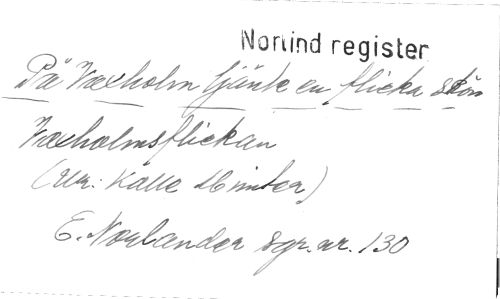 Norlind register
På Vaxholm tjänte en flicka skön
Vaxholmsflickan
(Ur: Kalle Munter)
E. Norlander sgr. nr. 130